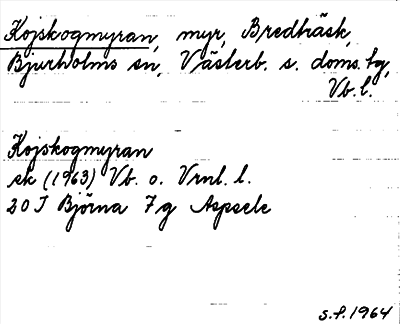 Kojskogmyran, myr, Bredträsk,
Bjurholms sn, Västerb. s. doms. tg,
Vb. l.
Kojskogmyran
sk (1963) Vb. o. Vrnl. l.
20 J Björna 7g Aspsele
s.f. 1964